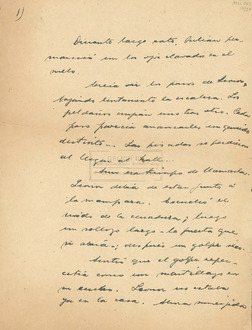 1)
Durante largo rato, Julián per-
maneció con los ojos clavados en el
suelo.
Creía oír los pasos de Leonor,
bajando lentamente la escalera. Los
peldaños crujían uno tras otro. Cada
paso parecía anunciarle un querido
distinto... Las pisadas se perdieron
al llegar al hall...
Aún era tiempo de llamarla.
Leonor debía de estar junto a
la mampara. Escuchó el
ruido de la cerradura; luego
un rollizo largo - la puerta que
se abría -; después un golpe seco.
Sintió que el golpe reper-
cutía como un martillazo en
su cerebro. Leonor no estaba
ya en la casa. Ahora sumergida